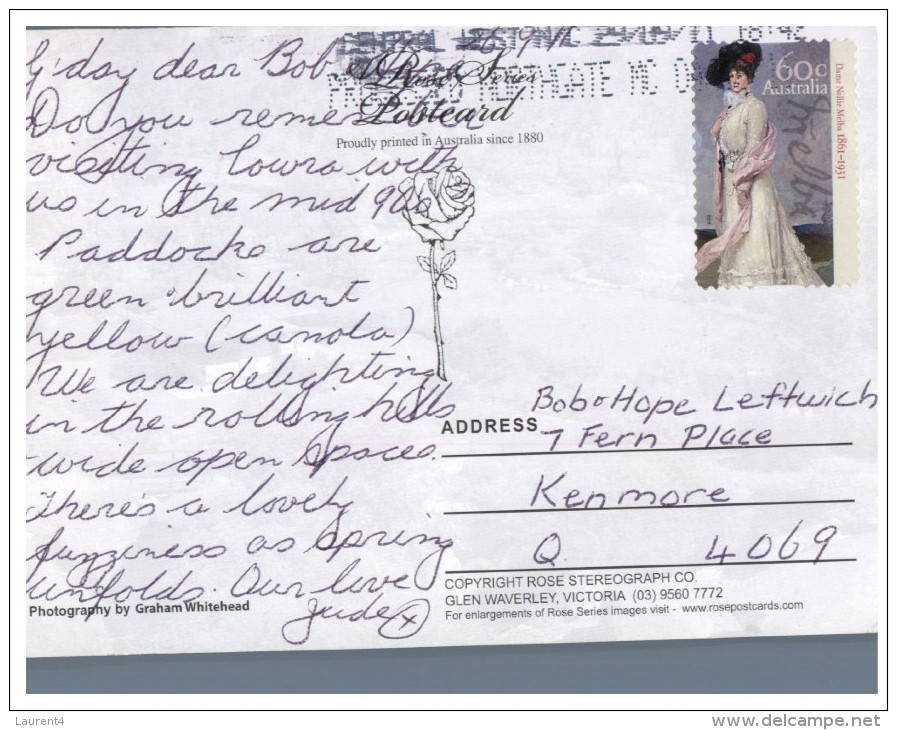 G'day dear Bob & Hope 26.9.11
Do you remember
visiting Cowra with
us in the mid 90s
Paddocks are
green & brilliant
yellow (canola)
We are delighting
in the rolling hills
wide open spaces.
There's a lovely
fuzziness as spring
unfolds. Our love
Jude x
Photography by Graham Whitehead
Rose Series
Postcard
Proudly printed in Australia since 1880
18:42
NORTHGATE MC
60c
Australia
Dame Nellie Melba 1861–1931
Melba
Bob & Hope Leftwich
ADDRESS 7 Fern Place
Kenmore
Q. 4069
COPYRIGHT ROSE STEREOGRAPH CO.
GLEN WAVERLEY, VICTORIA (03) 9560 7772
For enlargements of Rose Series images visit - www.rosepostcards.com
Laurent4
www.delcampe.net